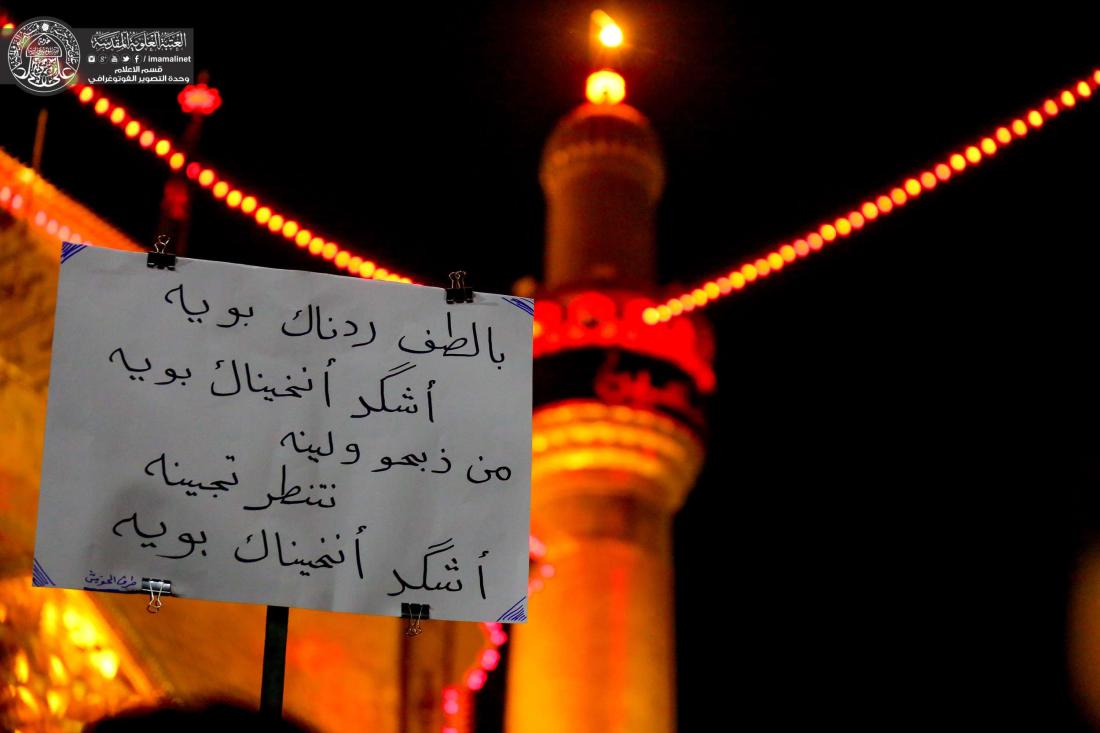 العتبة العلوية المقدسة
/ imamalinet
قسم الاعلام
وحدة التصوير الفوتوغرافي
بالطف ردناك بويه
أشگد أنخيناك بويه
من ذبحو ولينه
نتنطر تجينه
أشگد أنخيناك بويه
طرف الحويش